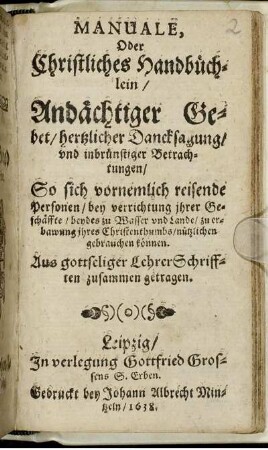 2
MANUALE,
Oder
Christliches Handbüch-
lein/
Andächtiger Ge-
bet/ hertzlicher Dancksagung/
vnd inbrünstiger Betrach-
tungen/
So sich vornemlich reisende
Personen/ bey verrichtung jhrer Ge-
schäffte/ beydes zu Wasser vnd Lande/ zu er-
bawung jhres Christenthumbs/ nützlichen
gebrauchen können.
Aus gottseliger Lehrer Schriff-
ten zusammen getragen.
Leipzig/
In verlegung Gottfried Gros-
sens S. Erben.
Gedruckt bey Johann Albrecht Min-
tzeln/ 1638.